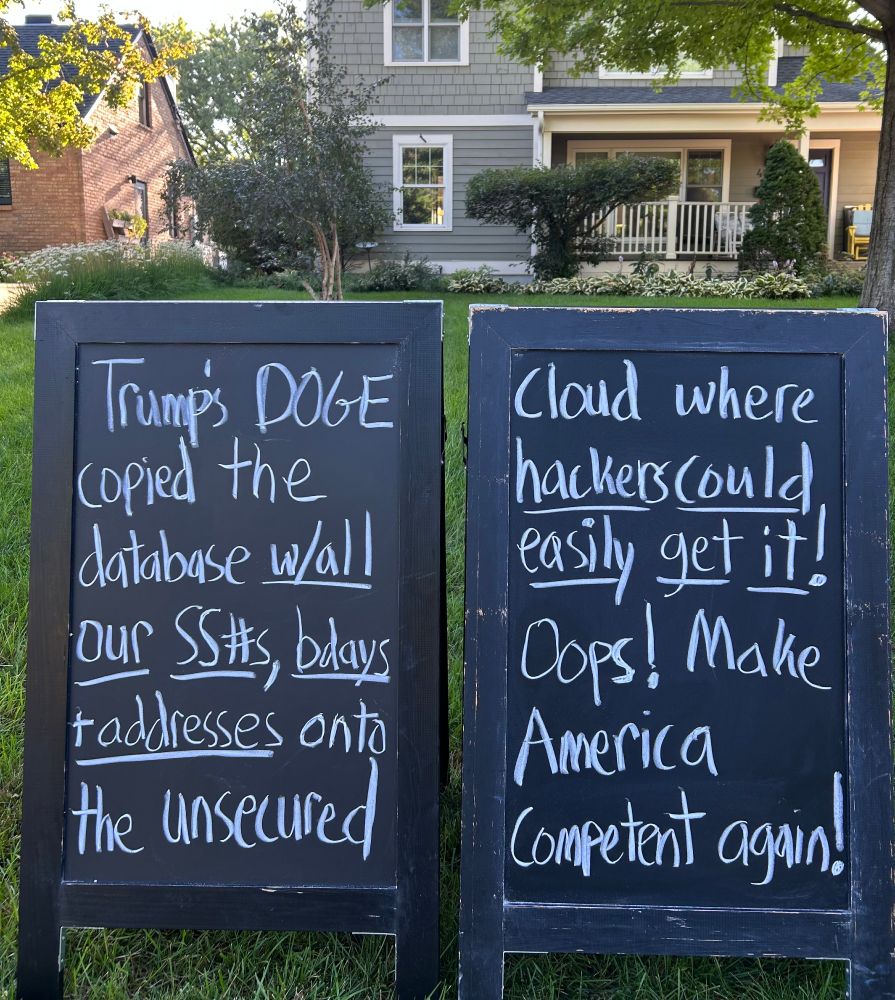 Trump's DOGE
copied the
database w/all
our SS#s, bdays
+addresses onto
the unsecured
Cloud where
hackers could
easily get it!
Oops! Make
America
Competent again!